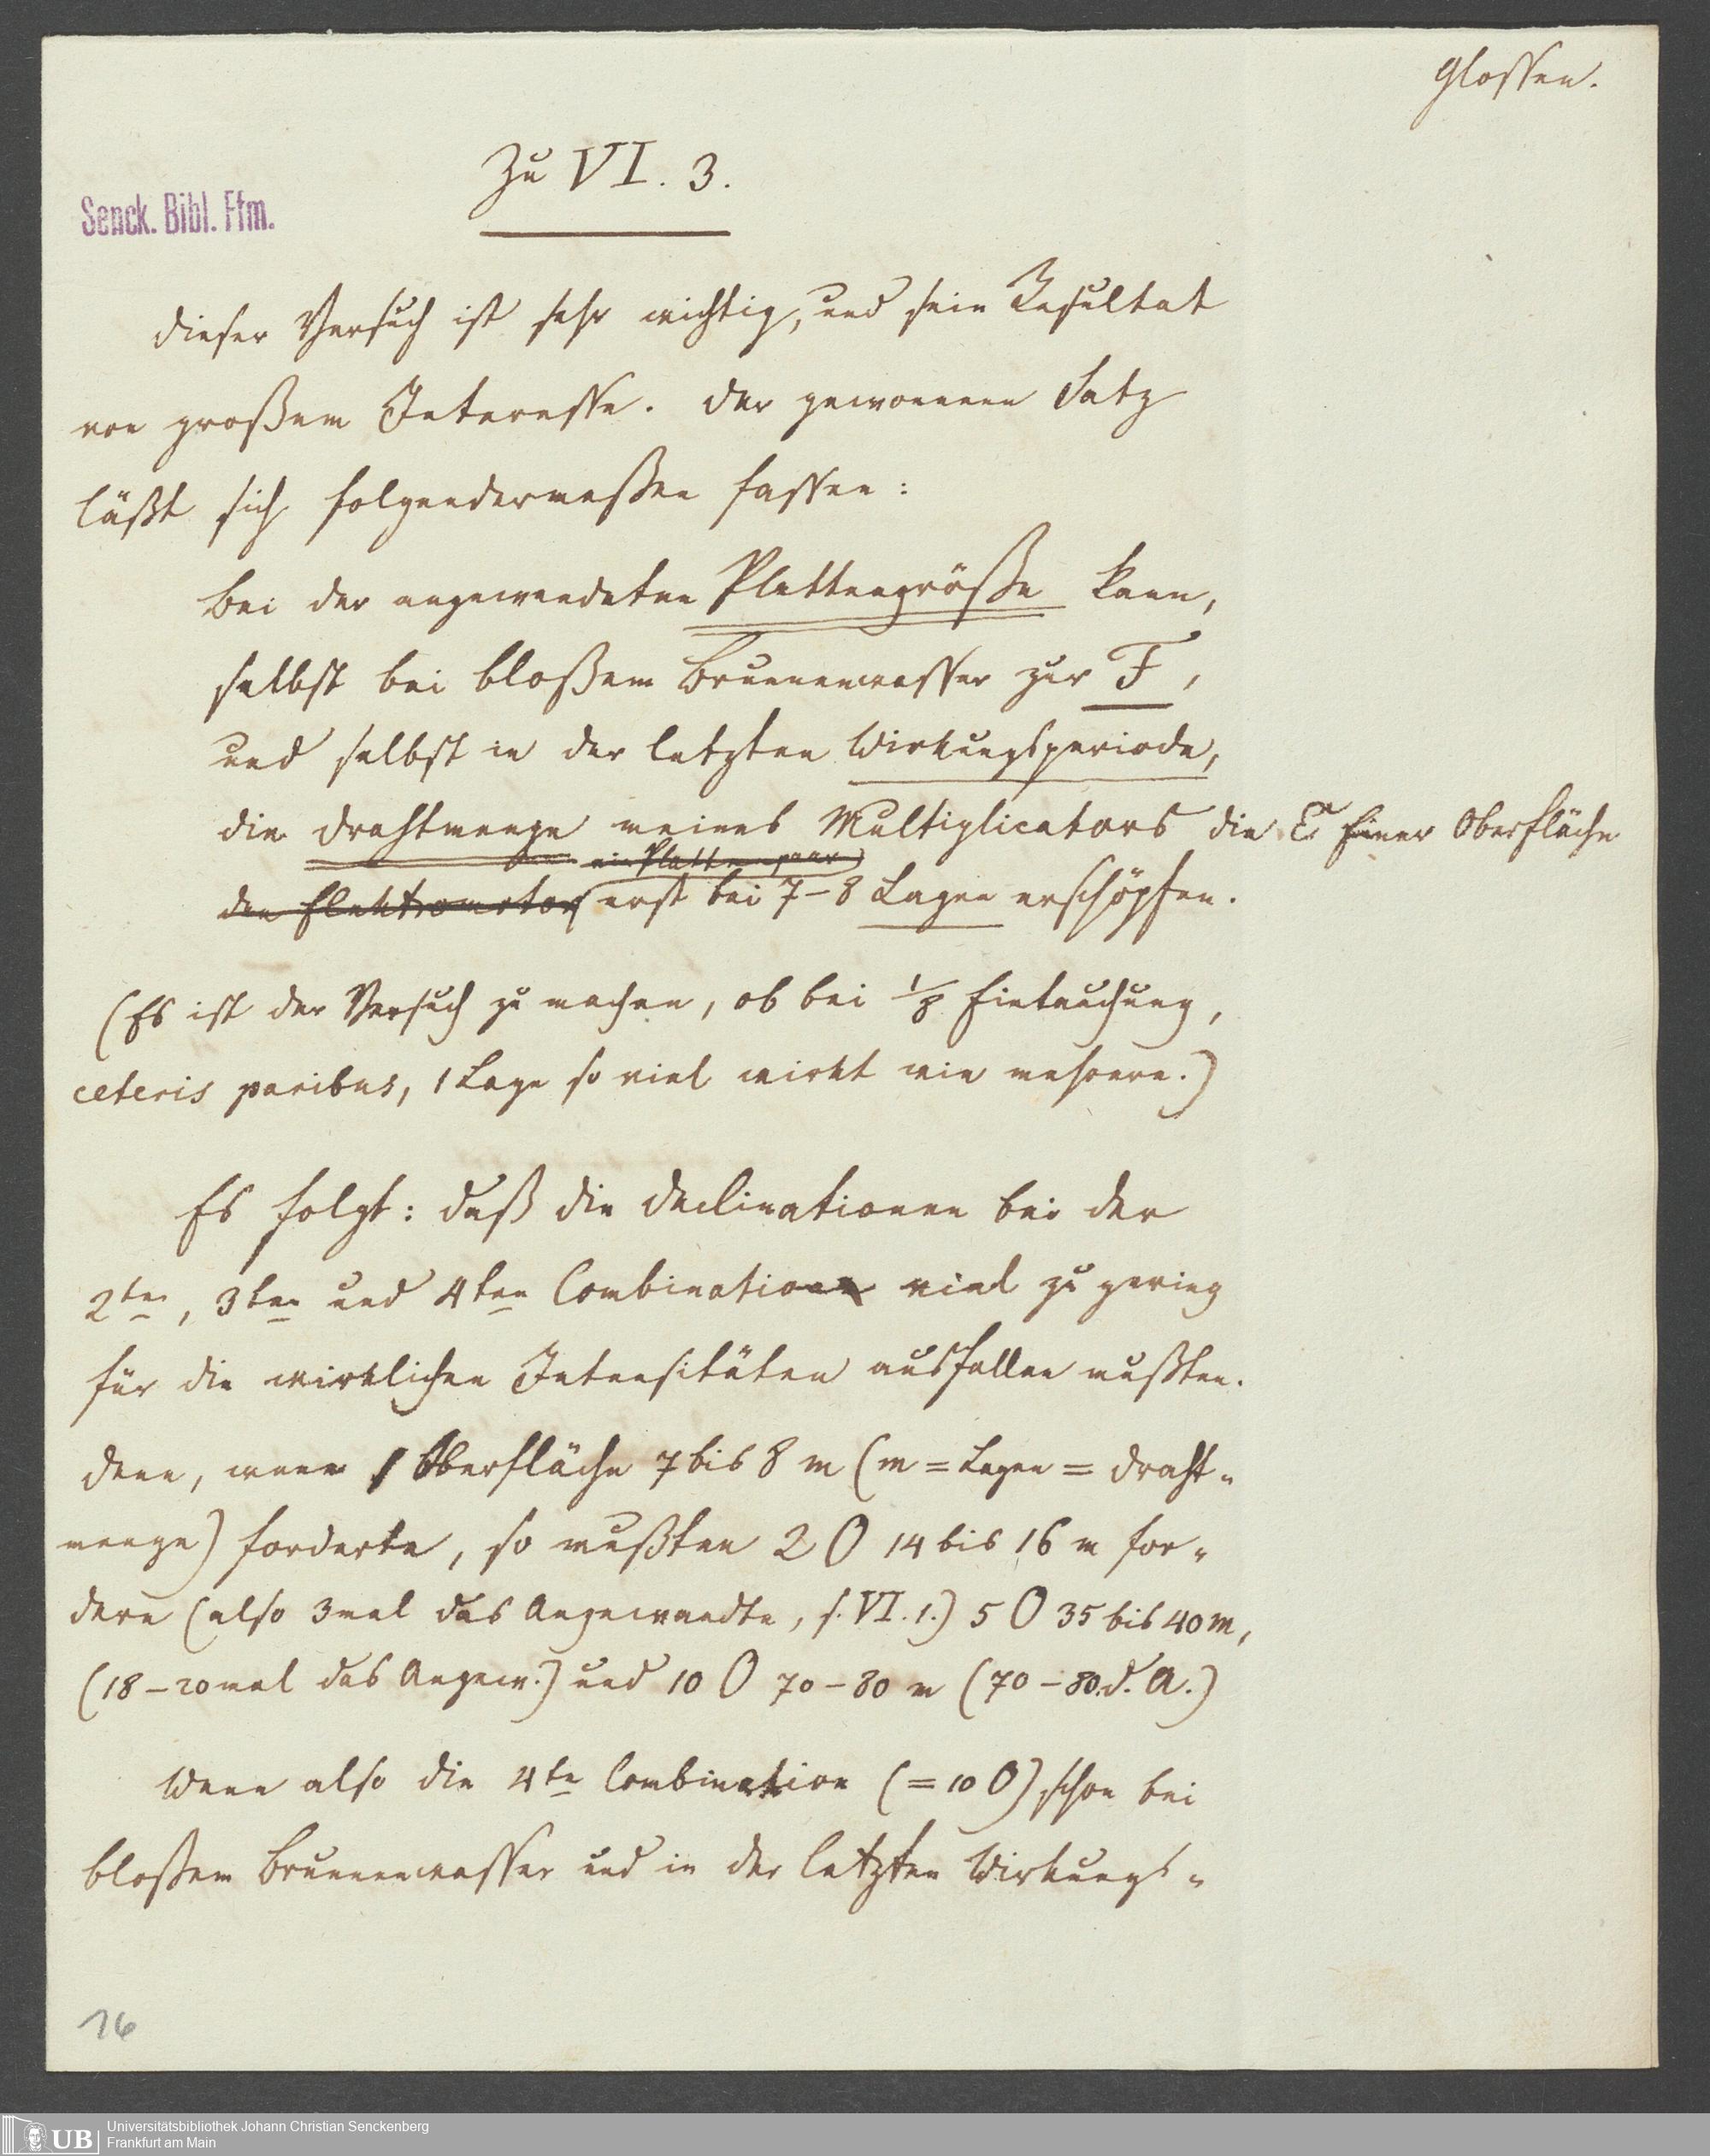 Glossen.
Zu VI. 3.
Senck. Bibl. Ffm.
Dieser Versuch ist sehr wichtig, und sein Resultat
von großem Interesse. Der gewonnene Satz
läßt sich folgendermaßen fassen:
Bei der angewendeten Plattengröße kann,
selbst bei bloßem Brunnenwasser zur F,
und selbst in der letzten Wirkungsperiode,
die Drahtmenge meines Multiplicators die E Einer Oberfläche
ein Plattenpaar
den Elektromotor erst bei 7–8 Lagen erschöpfen.
(Es ist der Versuch zu machen, ob bei 1/8 Eintauchung,
ceteris paribus, 1 Lage so viel wirkt wie mehrere.)
Es folgt: daß die Declinationen bei der
2ten, 3ten und 4ten Combination viel zu gering
für die wirklichen Intensitäten ausfallen mußten.
Denn, wenn 1 Oberfläche 7 bis 8 m (m = Lagen = Draht-
menge) forderte, so mußten 2 O 14 bis 16 m for-
dern (also 3mal das Angewandte, s. VI. 1.) 5 O 35 bis 40 m,
(18–20mal das Angew.) und 10 O 70–80 m (70–80. d. A.)
Wenn also die 4te Combination (= 10 O) schon bei
bloßem Brunnenwasser und in der letzten Wirkungs-
16
UB
Universitätsbibliothek Johann Christian Senckenberg
Frankfurt am Main